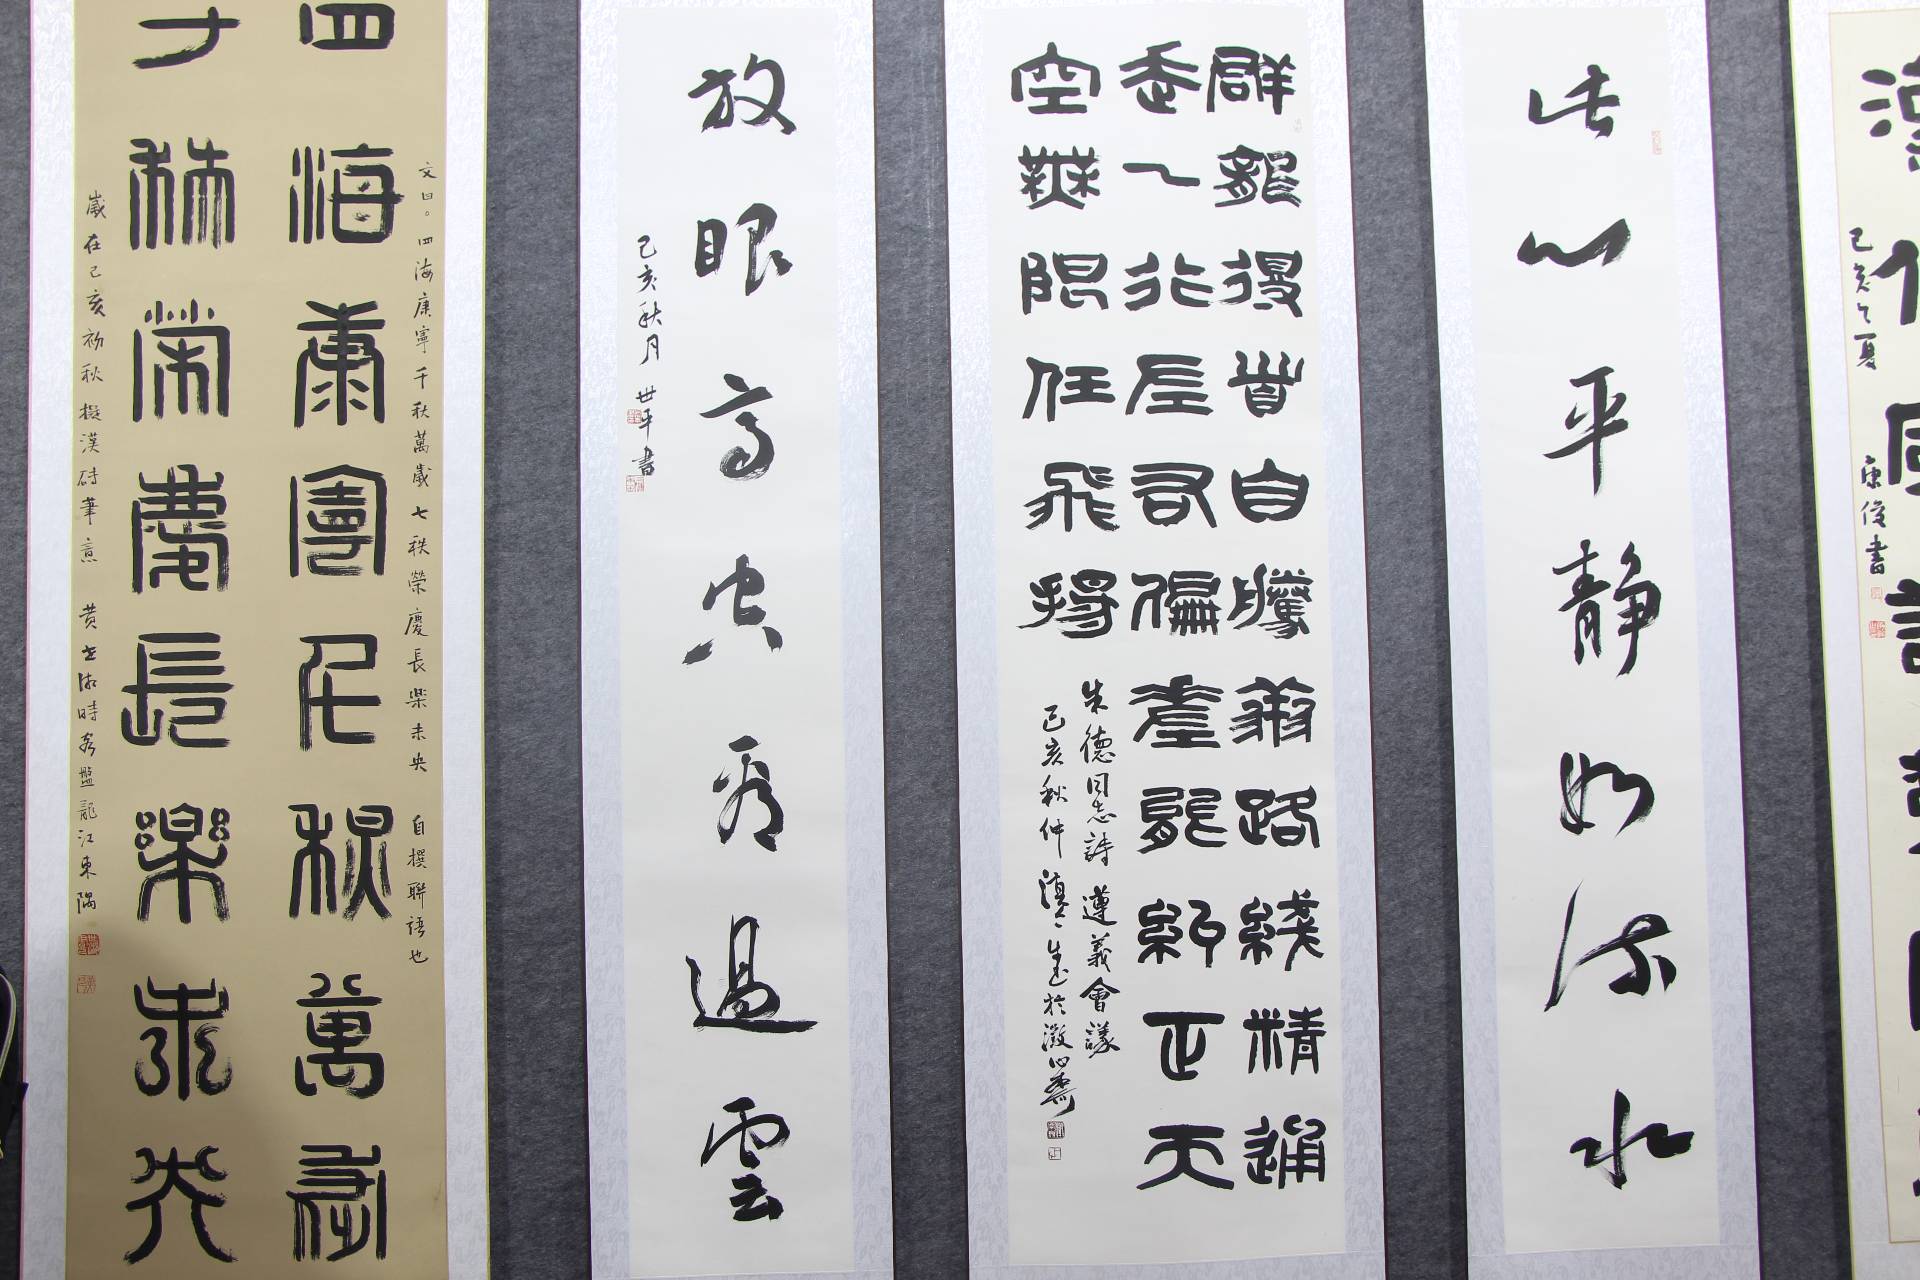 己亥之夏
康俊書
此心平静如流水
群龍得首自騰翔路綫精通
走一行左右偏差能糾正天
空無限任飛揚
朱德同志詩 遵義會議
己亥秋仲
放眼高空看過雲
己亥秋月 世平書
文曰。四海康寧千秋萬歲七秩榮慶長樂未央 自撰聯語也
四海康寧千秋萬歲
七秩榮慶長樂未央
歲在己亥初秋 擬漢磚筆意 黄世淑時客盤龍江東隅